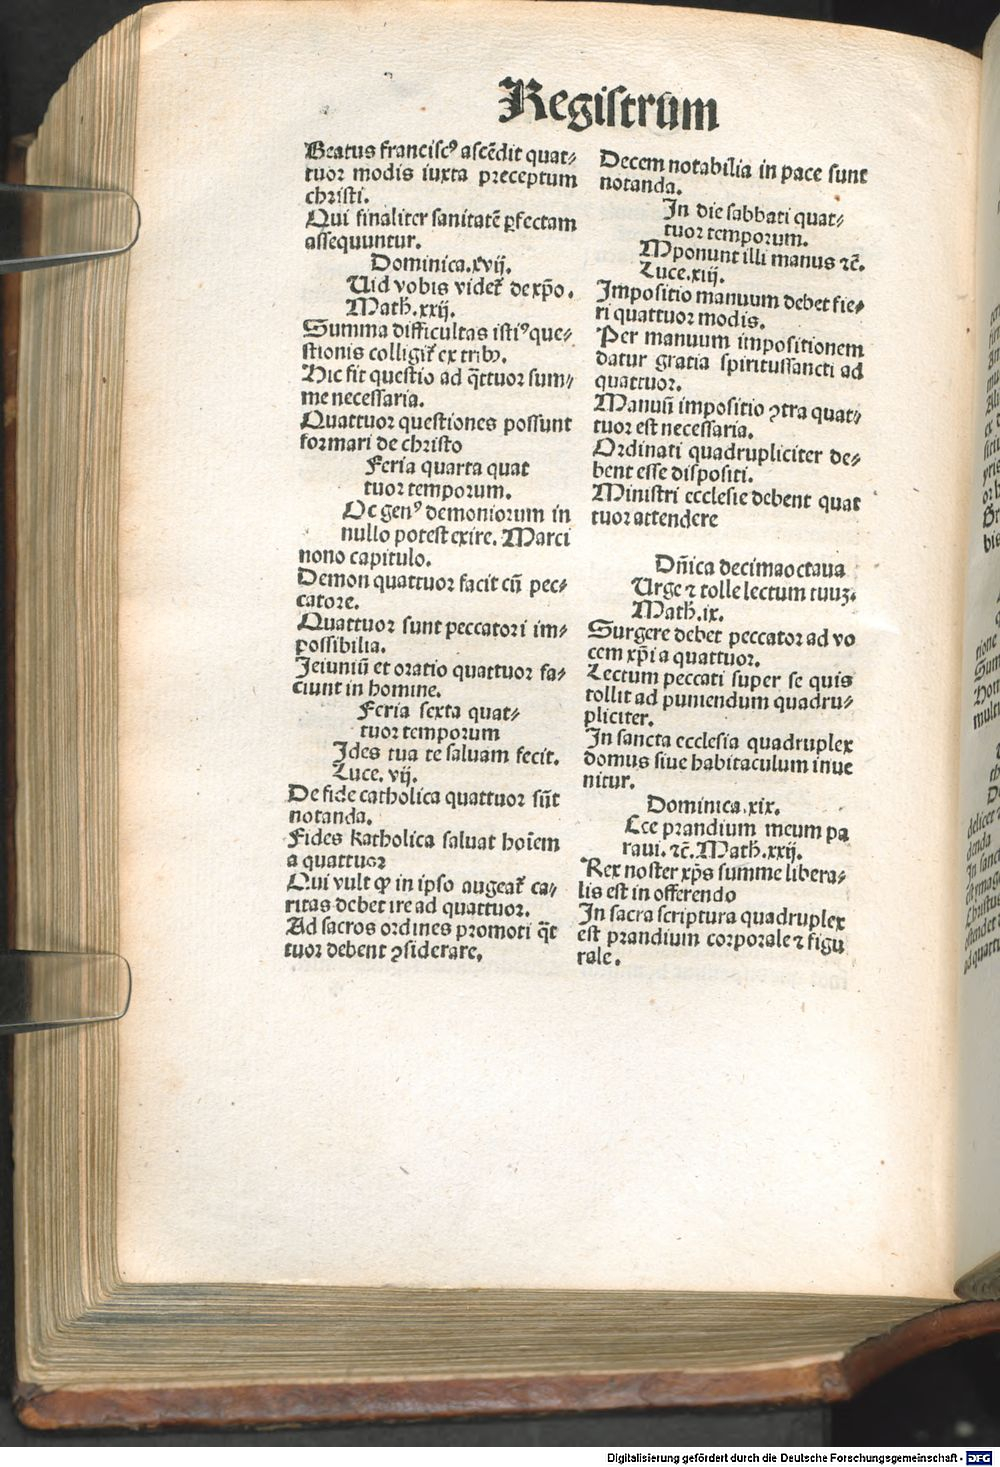 Regiſtrum
Beatus franciſcꝰ aſcēdit quat⸗
tuor modis iuxta preceptum
chriſti.
Qui finaliter ſanitatē ꝑfectam
aſſequuntur.
Dominica.xvij.
Uid vobis videt᷑ de xp̄o.
Math.xxij.
Summa difficultas iſtiꝰ que⸗
ſtionis colligit᷑ ex tribꝫ.
Hic fit queſtio ad q̄ttuor ſum⸗
me neceſſaria.
Quattuor queſtiones poſſunt
formari de chriſto
Feria quarta quat
tuor temporum.
Oc genꝰ demoniorum in
nullo poteſt exire. Marci
nono capitulo.
Demon quattuor facit cū pec⸗
catore.
Quattuor ſunt peccatori im⸗
poſſibilia.
Jeiuniū et oratio quattuor fa⸗
ciunt in homine.
Feria ſexta quat⸗
tuor temporum
Jdes tua te ſaluam fecit.
Luce. vij.
De fide catholica quattuor ſūt
notanda.
Fides katholica ſaluat hoīem
a quattuor
Qui vult ꝙ in ipſo augeat᷑ ca⸗
ritas debet ire ad quattuor.
Ad ſacros ordines promoti q̄t
tuor debent ꝯſiderare.
Decem notabilia in pace ſunt
notanda.
In die ſabbati quat⸗
tuor temporum.
Mponunt illi manus ⁊c̄.
Luce.xiij.
Impoſitio manuum debet fie⸗
ri quattuor modis.
Per manuum impoſitionem
datur gratia ſpirituſſancti ad
quattuor.
Manuū impoſitio ꝯtra quat⸗
tuor eſt neceſſaria.
Ordinati quadrupliciter de⸗
bent eſſe diſpoſiti.
Miniſtri eccleſie debent quat
tuor attendere
Dn̄ica decimaoctaua
Urge ⁊ tolle lectum tuuꝫ.
Math.ix.
Surgere debet peccator ad vo
cem xp̄i a quattuor.
Lectum peccati ſuper ſe quis
tollit ad puniendum quadru⸗
pliciter.
In ſancta eccleſia quadruplex
domus ſiue habitaculum inue
nitur.
Dominica.xix.
Cce prandium meum pa
raui. ⁊c̄. Math.xxij.
Rex noſter xp̄s ſumme libera⸗
lis eſt in offerendo
In ſacra ſcriptura quadruplex
eſt prandium corporale ⁊ figu
rale.
Digitalisierung gefördert durch die Deutsche Forschungsgemeinschaft - DFG